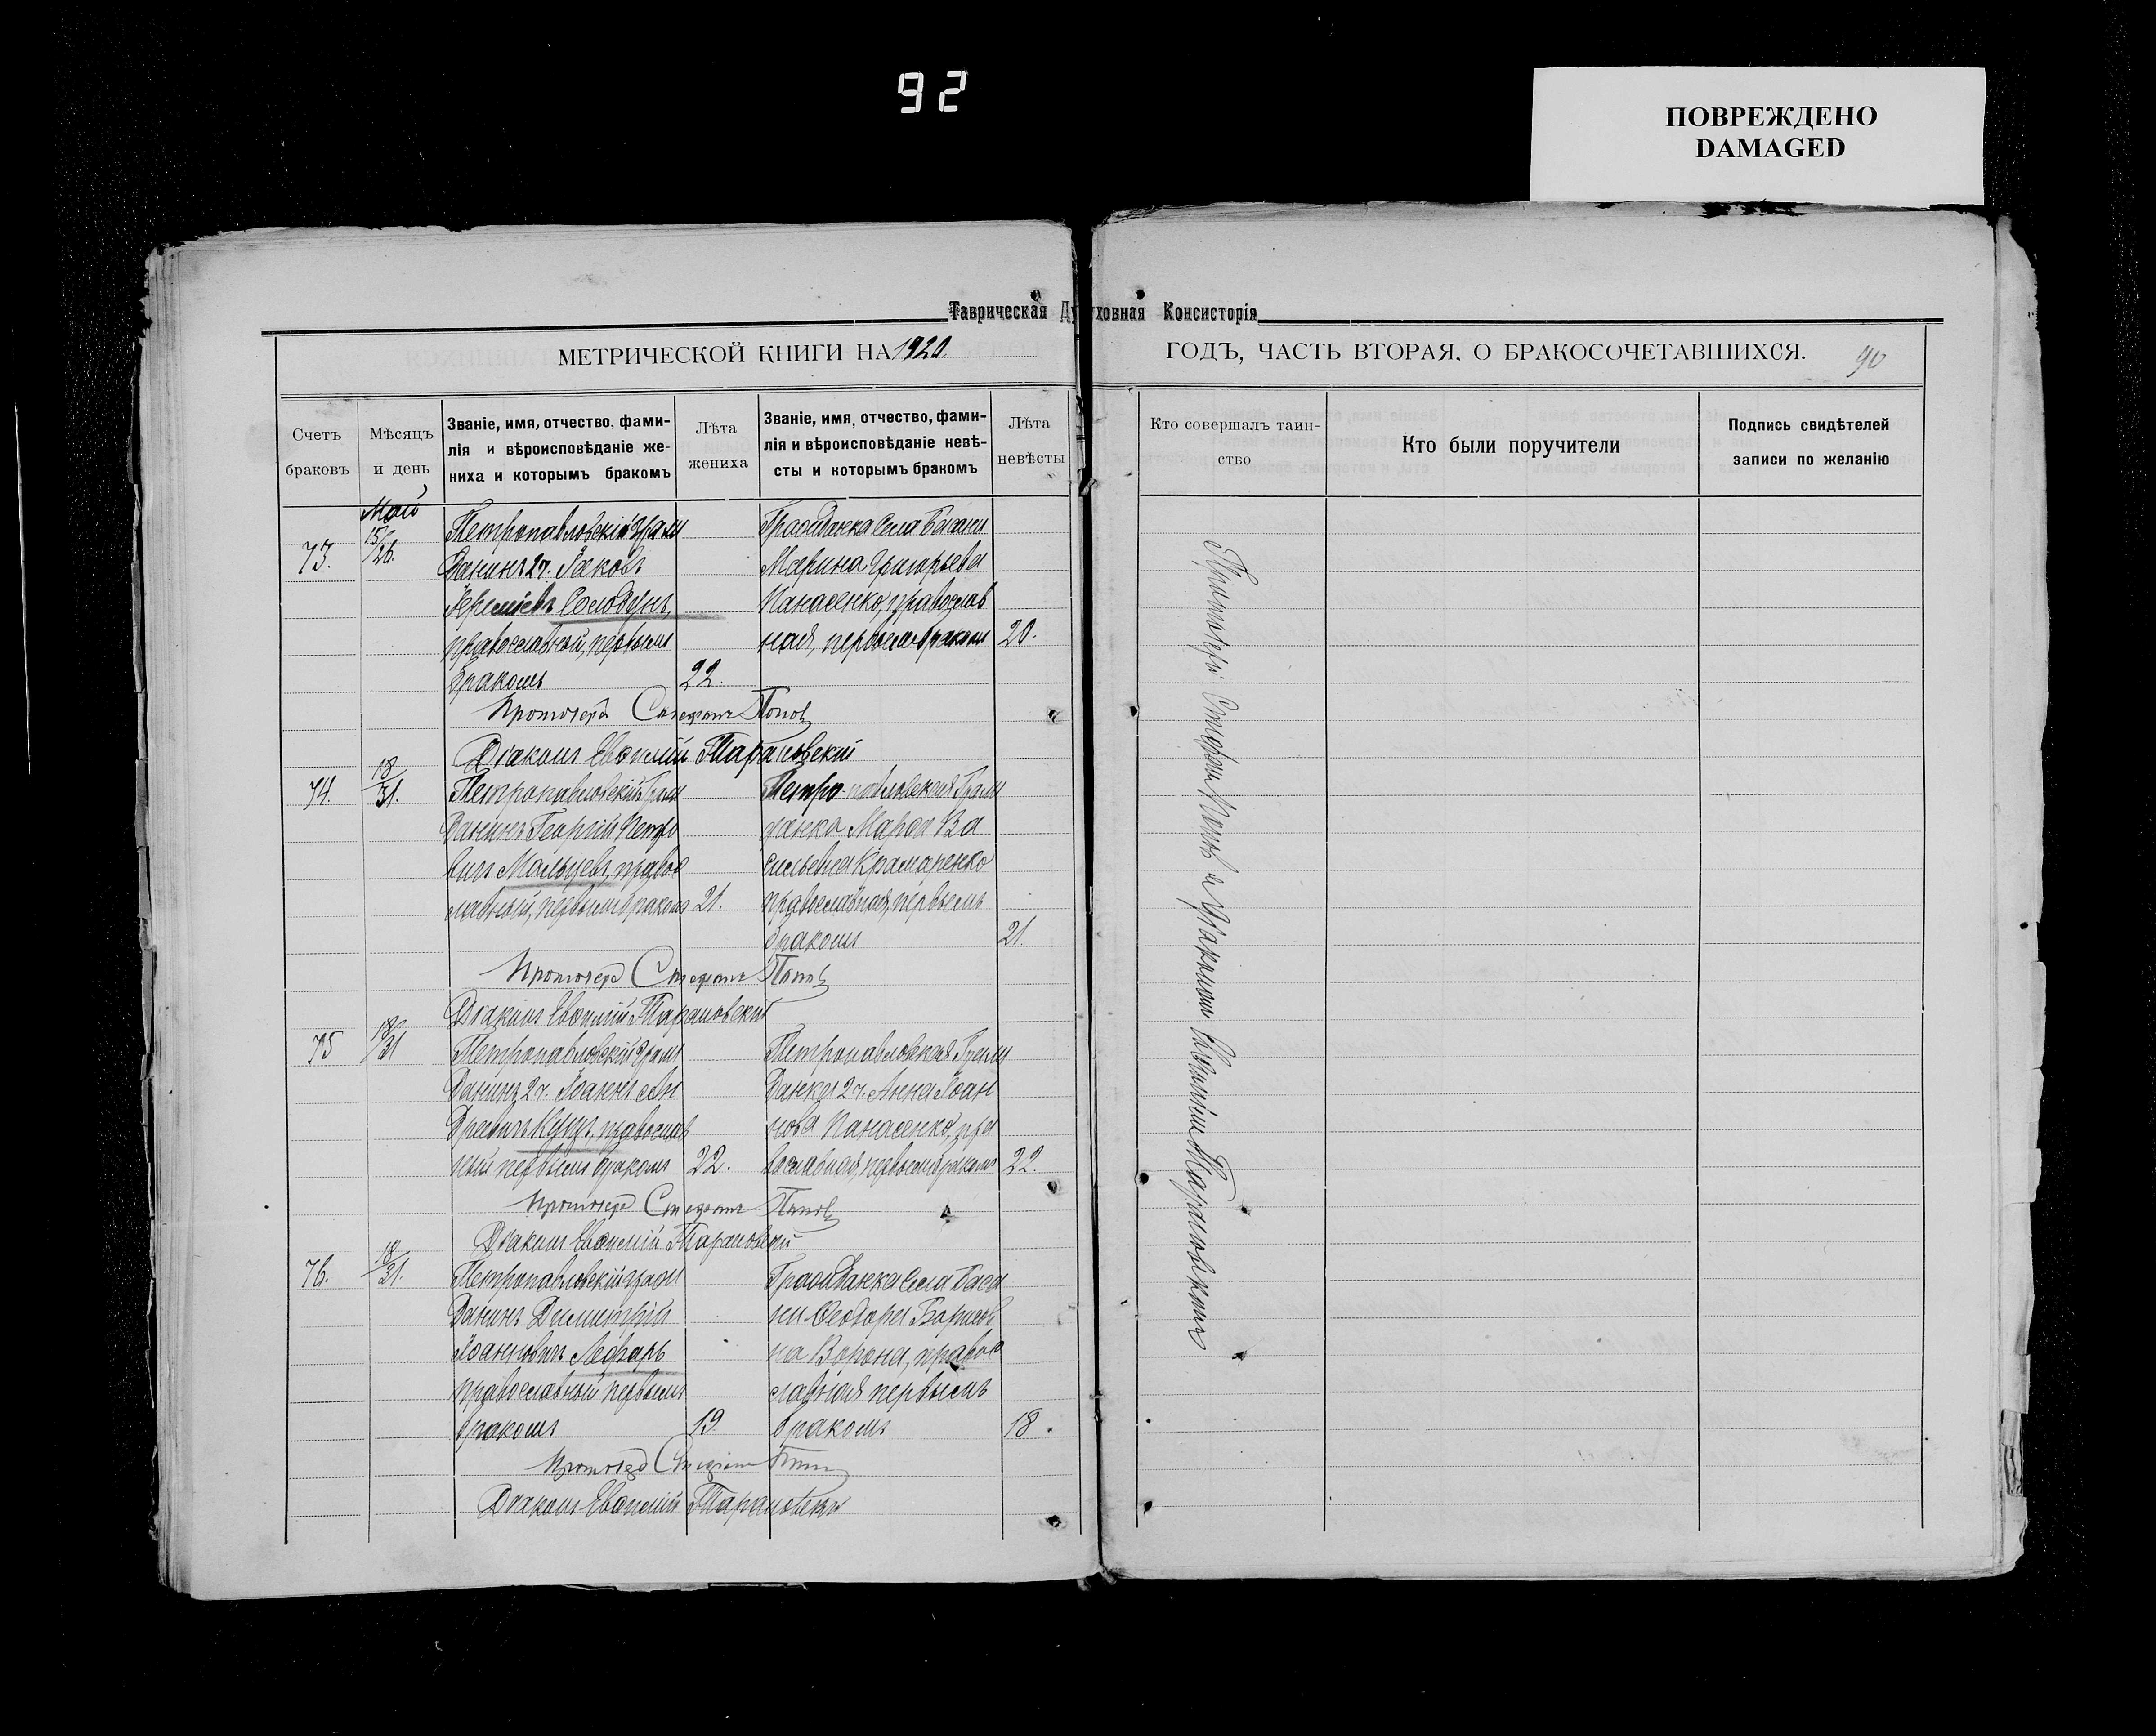 92
ПОВРЕЖДЕНО
DAMAGED
Таврическая Духовная Консисторія
МЕТРИЧЕСКОЙ КНИГИ НА 1920.
ГОДЪ, ЧАСТЬ ВТОРАЯ, О БРАКОСОЧЕТАВШИХСЯ.
90
Счетъ браковъ
Мѣсяцъ и день
Званіе, имя, отчество, фами-
лія и вѣроисповѣданіе же-
ниха и которымъ бракомъ
Лѣта жениха
Званіе, имя, отчество, фами-
лія и вѣроисповѣданіе невѣ-
сты и которымъ бракомъ
Лѣта невѣсты
Кто совершалъ таин-
ство
Кто были поручители
Подпись свидѣтелей
записи по желанію
Май
73.
15/26.
Петропавловскій граж
данинъ 2ч. Іаковъ
Іереміевъ Солодунъ,
православный, первымъ
бракомъ
22.
Гражданка села
Марина Григорьева
Панасенко, православ
ная, первымъ бракомъ
20.
Протоіерей Стефанъ Поповъ
Діаконъ Евѳимій Тарановскій
74.
18/31.
Петропавловскій граж
данинъ Георгій Петро
вичъ Мальцевъ, правос
лавный, первымъ бракомъ
21.
Петро-павловская Граж
данка Марѳа Ва
сильевна Крамаренко
православная, первымъ
бракомъ
21.
Протоіерей Стефанъ Поповъ
Діаконъ Евѳимій Тарановскій
75
18/31
Петропавловскій граж
данинъ 2ч. Іоаннъ Ан
дреевичъ Куцъ, православ
ный первымъ бракомъ
22.
Петропавловская Граж
данка 2ч. Анна Іоан
нова Панасенко, пра
вославная, первымъ бракомъ
22.
Протоіерей Стефанъ Поповъ
Діаконъ Евѳимій Тарановскій
76.
18/31.
Петропавловскій граж
данинъ Димитрій
Іоанновичъ Лефарь
православный первымъ
бракомъ
19
Гражданка села Баса
ни Ѳеодора Борисов
на Ворона, правос
лавная первымъ
бракомъ
18.
Протоіерей Стефанъ Поповъ
Діаконъ Евѳимій Тарановскій
Протоіерей Стефанъ Поповъ съ діакономъ Евѳиміемъ Тарановскимъ